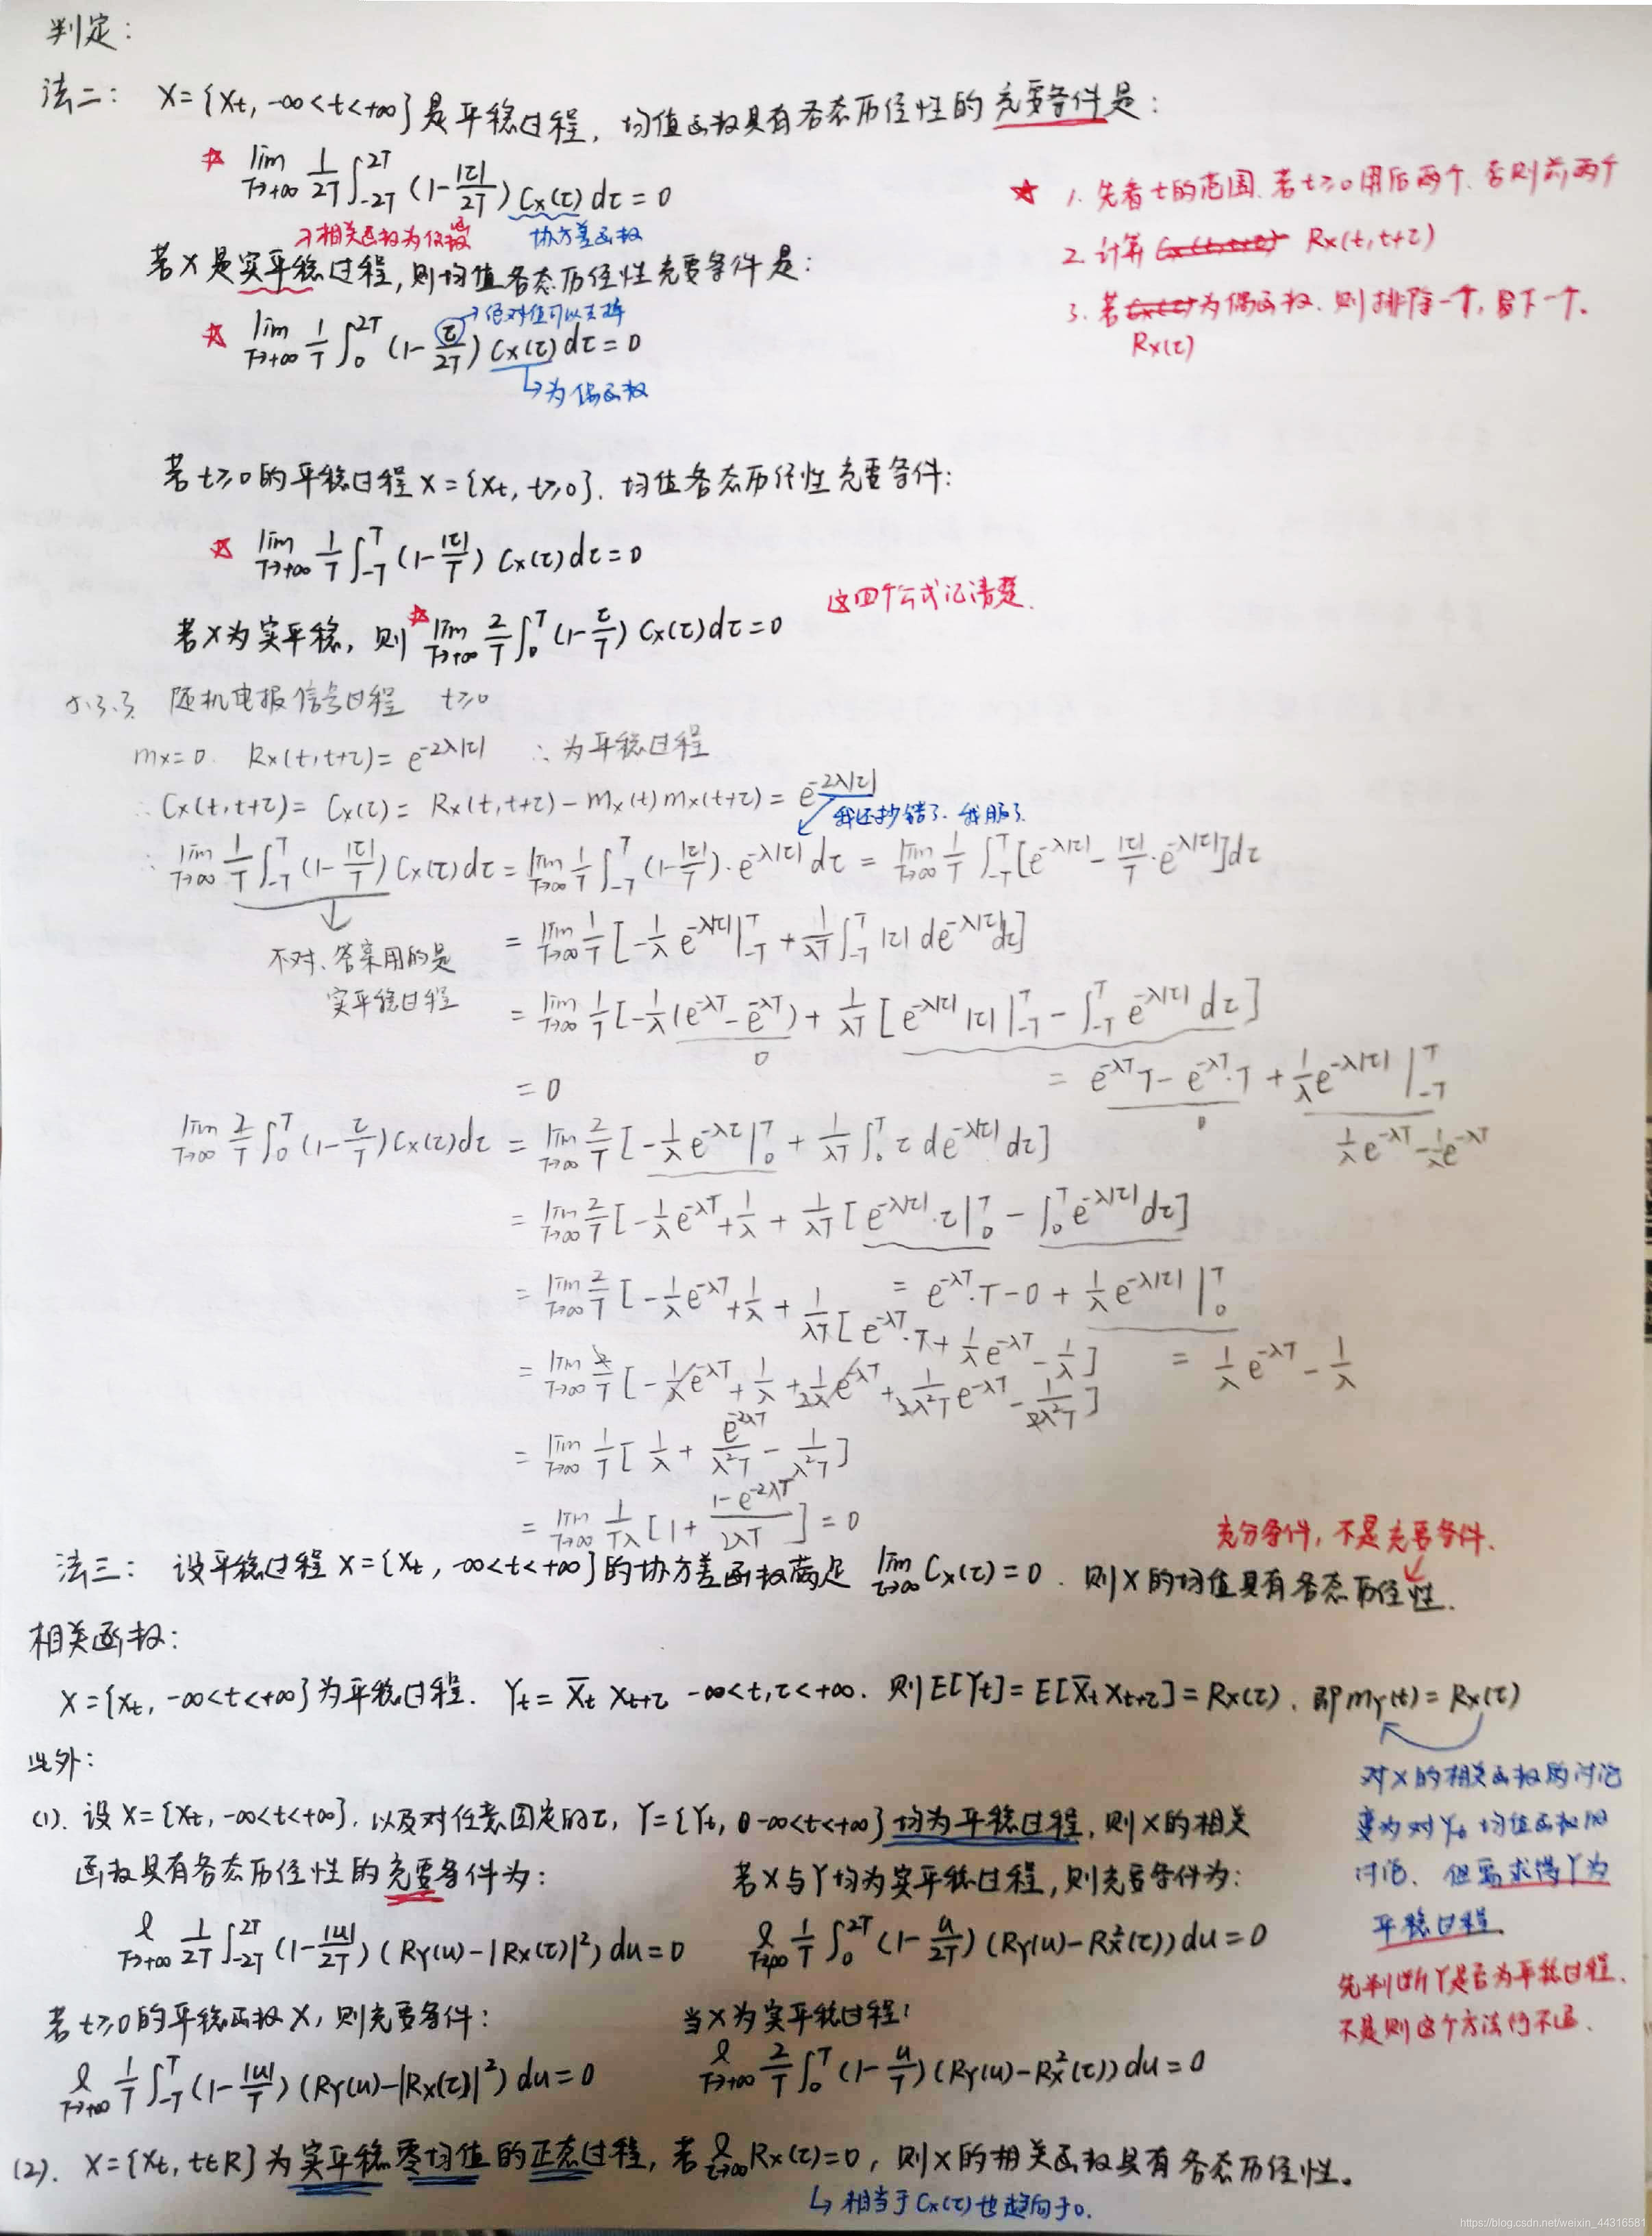 判定：
法二： X={Xt, -∞<t<+∞}是平稳过程，均值函数具有各态历经性的充要条件是：
☆ lim T→+∞ 1/2T ∫_{-2T}^{2T} (1-|τ|/2T) Cx(τ) dτ = 0
→相关函数为偶函数 协方差函数
若X是实平稳过程，则均值各态历经性充要条件是：
☆ lim T→+∞ 1/T ∫_0^{2T} (1-τ/2T) Cx(τ) dτ = 0
→绝对值可以去掉
↳为偶函数
★ 1. 先看t的范围、若t≥0用后两个、否则前两个
2. 计算 Cx(t,t+τ) Rx(t,t+τ)
3. 若Cx(τ)为偶函数、则排除一个，留下一个.
Rx(τ)
若t≥0的平稳过程X={Xt, t≥0}，均值各态历经性充要条件：
☆ lim T→+∞ 1/T ∫_{-T}^{T} (1-|τ|/T) Cx(τ) dτ = 0
这四个公式记清楚.
若X为实平稳，则 ☆ lim T→+∞ 2/T ∫_0^T (1-τ/T) Cx(τ) dτ = 0
5.3.3 随机电报信号过程 t≥0
mx=0. Rx(t,t+τ)= e^{-2λ|τ|} ∴为平稳过程
∴ Cx(t,t+τ)= Cx(τ)= Rx(t,t+τ)-mx(t)mx(t+τ)= e^{-2λ|τ|}
我还抄错了、我服了.
∴ lim T→∞ 1/T ∫_{-T}^{T} (1-|τ|/T) Cx(τ) dτ = lim T→∞ 1/T ∫_{-T}^{T} (1-|τ|/T)·e^{-λ|τ|} dτ = lim T→∞ 1/T ∫_{-T}^{T} [e^{-λ|τ|} - |τ|/T·e^{-λ|τ|}] dτ
不对、答案用的是
实平稳过程
= lim T→∞ 1/T [-1/λ e^{-λ|τ|} |_{-T}^{T} + 1/λT ∫_{-T}^{T} |τ| de^{-λ|τ|} dτ]
= lim T→∞ 1/T [-1/λ (e^{-λT} - e^{-λT}) + 1/λT [e^{-λ|τ|} |τ| |_{-T}^{T} - ∫_{-T}^{T} e^{-λ|τ|} dτ]
0
= 0
= e^{-λT} T - e^{-λT}·T + 1/λ e^{-λ|τ|} |_{-T}^{T}
0 1/λ e^{-λT} - 1/λ e^{-λT}
lim T→∞ 2/T ∫_0^T (1-τ/T) Cx(τ) dτ = lim T→∞ 2/T [-1/λ e^{-λτ} |_0^T + 1/λT ∫_0^T τ de^{-λ|τ|} dτ]
= lim T→∞ 2/T [-1/λ e^{-λT} + 1/λ + 1/λT [e^{-λ|τ|}·τ |_0^T - ∫_0^T e^{-λ|τ|} dτ]
= e^{-λT}·T - 0 + 1/λ e^{-λ|τ|} |_0^T
= lim T→∞ 2/T [-1/λ e^{-λT} + 1/λ + 1/λT [e^{-λT}·T + 1/λ e^{-λT} - 1/λ]
= 1/λ e^{-λT} - 1/λ
= lim T→∞ 2/T [-1/λ e^{-λT} + 1/λ + 1/2λ e^{-λT} + 1/2λ²T e^{-λT} - 1/2λ²T]
= lim T→∞ 1/T [1/λ + e^{-2λT}/λ²T - 1/λ²T]
= lim T→∞ 1/Tλ [1 + 1-e^{-2λT}/2λT] = 0
充分条件，不是充要条件.
法三： 设平稳过程X={Xt, -∞<t<+∞}的协方差函数满足 lim τ→∞ Cx(τ)=0. 则X的均值具有各态历经性.
相关函数：
X={Xt, -∞<t<+∞}为平稳过程. Yt= X̄t Xt+τ -∞<t,τ<+∞. 则E[Yt]=E[X̄t Xt+τ]=Rx(τ). 即mY(t)=Rx(τ)
此外：
(1). 设X={Xt, -∞<t<+∞}, 以及对任意固定的τ, Y={Yt, -∞<t<+∞}均为平稳过程, 则X的相关
函数具有各态历经性的充要条件为：
l T→+∞ 1/2T ∫_{-2T}^{2T} (1-|u|/2T) (RY(u)-|Rx(τ)|²) du = 0
若X与Y均为实平稳过程, 则充要条件为：
l T→+∞ 1/T ∫_0^{2T} (1-u/2T) (RY(u)-Rx²(τ)) du = 0
对X的相关函数的讨论
变为对Yt均值函数的
讨论. 但要求得Y为
平稳过程
先判断Y是否为平稳过程.
不是则这个方法行不通.
若t≥0的平稳函数X, 则充要条件：
l T→+∞ 1/T ∫_{-T}^{T} (1-|u|/T) (RY(u)-|Rx(τ)|²) du = 0
当X为实平稳过程：
l T→+∞ 2/T ∫_0^T (1-u/T) (RY(u)-Rx²(τ)) du = 0
(2). X={Xt, t∈R}为实平稳零均值的正态过程, 若 l τ→∞ Rx(τ)=0, 则X的相关函数具有各态历经性。
↳相当于Cx(τ)也趋向于0.
https://blog.csdn.net/weixin_44316581